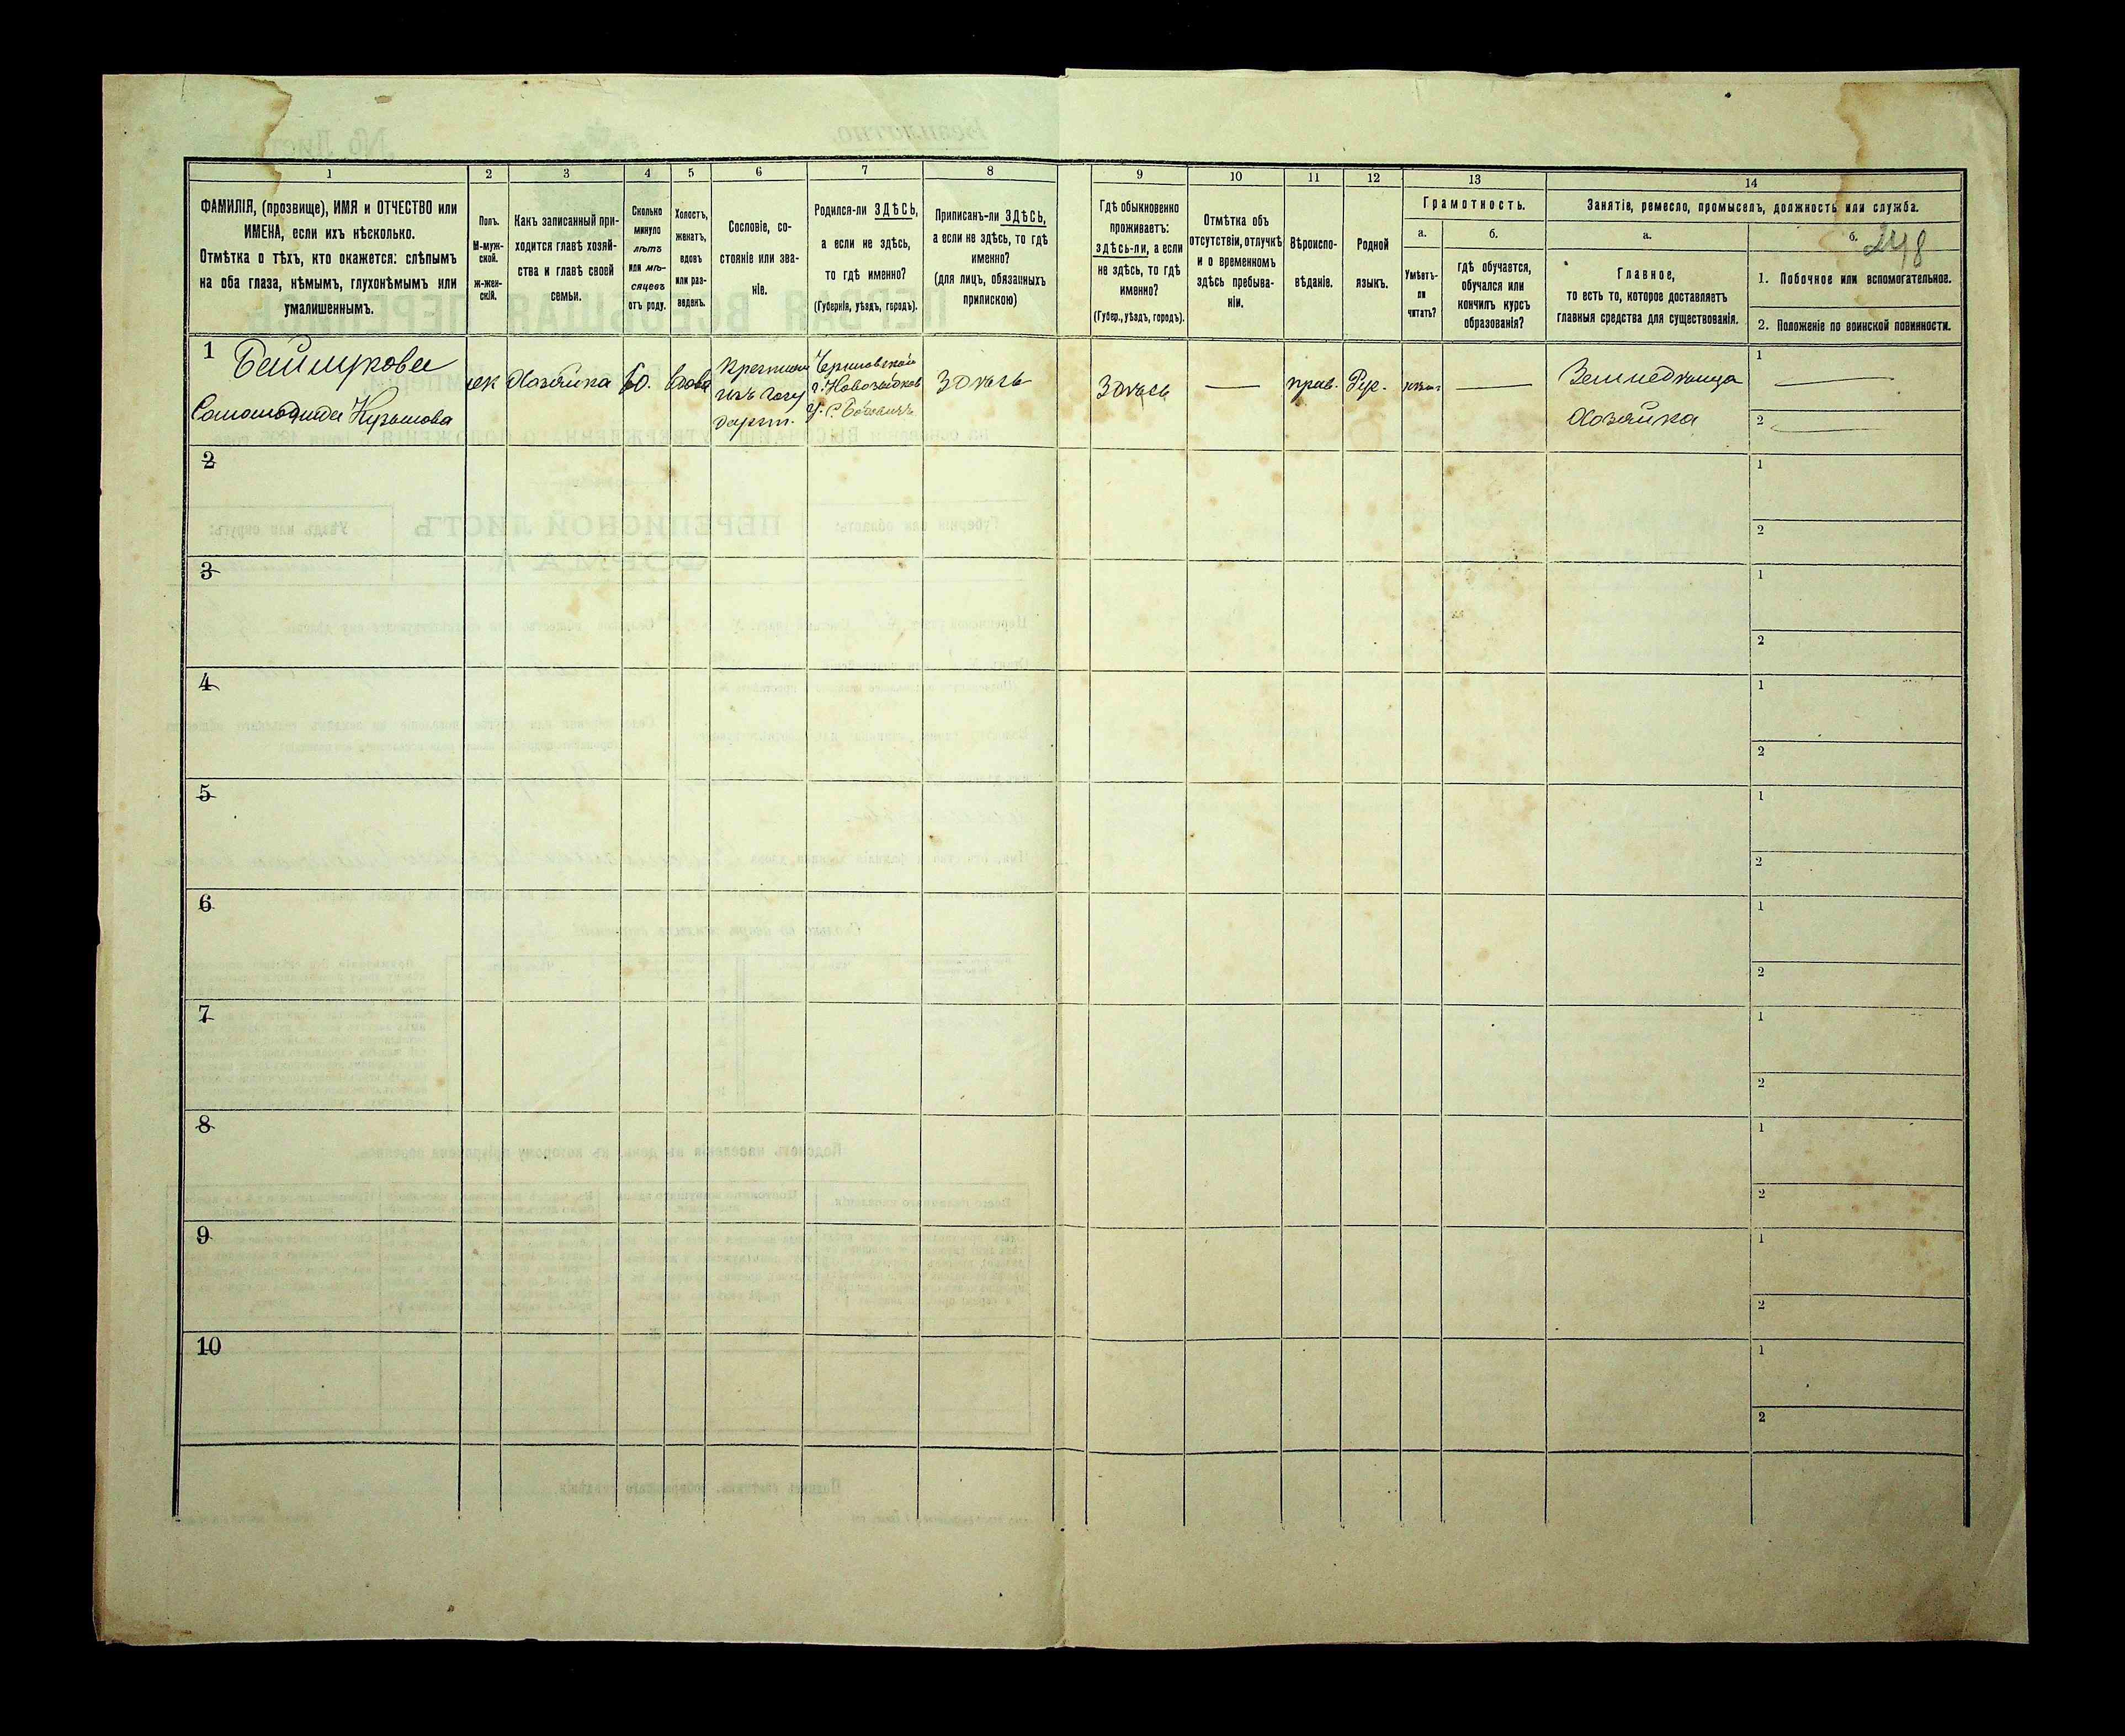 248
1
2
3
4
5
6
7
8
9
10
11
12
13
14
ФАМИЛІЯ, (прозвище), ИМЯ и ОТЧЕСТВО или
ИМЕНА, если ихъ нѣсколько.
Отмѣтка о тѣхъ, кто окажется: слѣпымъ
на оба глаза, нѣмымъ, глухонѣмымъ или
умалишеннымъ.
Полъ.
М-муж-
ской.
Ж-жен-
скій.
Какъ записанный при-
ходится главѣ хозяй-
ства и главѣ своей
семьи.
Сколько
минуло
лѣтъ
или мѣ-
сяцевъ
отъ роду.
Холостъ,
женатъ,
вдовъ
или раз-
веденъ.
Сословіе, со-
стояніе или зва-
ніе.
Родился-ли ЗДѢСЬ,
а если не здѣсь,
то гдѣ именно?
(Губернія, уѣздъ, городъ).
Приписанъ-ли ЗДѢСЬ,
а если не здѣсь, то гдѣ
именно?
(для лицъ, обязанныхъ
припискою)
Гдѣ обыкновенно
проживаетъ:
здѣсь-ли, а если
не здѣсь, то гдѣ
именно?
(Губер., уѣздъ, городъ).
Отмѣтка объ
отсутствіи, отлучкѣ
и о временномъ
здѣсь пребыва-
ніи.
Вѣроиспо-
вѣданіе.
Родной
языкъ.
Грамотность.
а.
Умѣетъ-
ли
читать?
б.
гдѣ обучается,
обучался или
кончилъ курсъ
образованія?
Занятіе, ремесло, промыселъ, должность или служба.
а.
Главное,
то есть то, которое доставляетъ
главныя средства для существованія.
б.
1. Побочное или вспомогательное.
2. Положеніе по воинской повинности.
1
Хозяйка
60.
вдова
изъ госу
дарст.
здѣсь
здѣсь
—
прав.
Рус.
—
Хозяйка
1 —
2 —
2
1
2
3
1
2
4
1
2
5
1
2
6
1
2
7
1
2
8
1
2
9
1
2
10
1
2